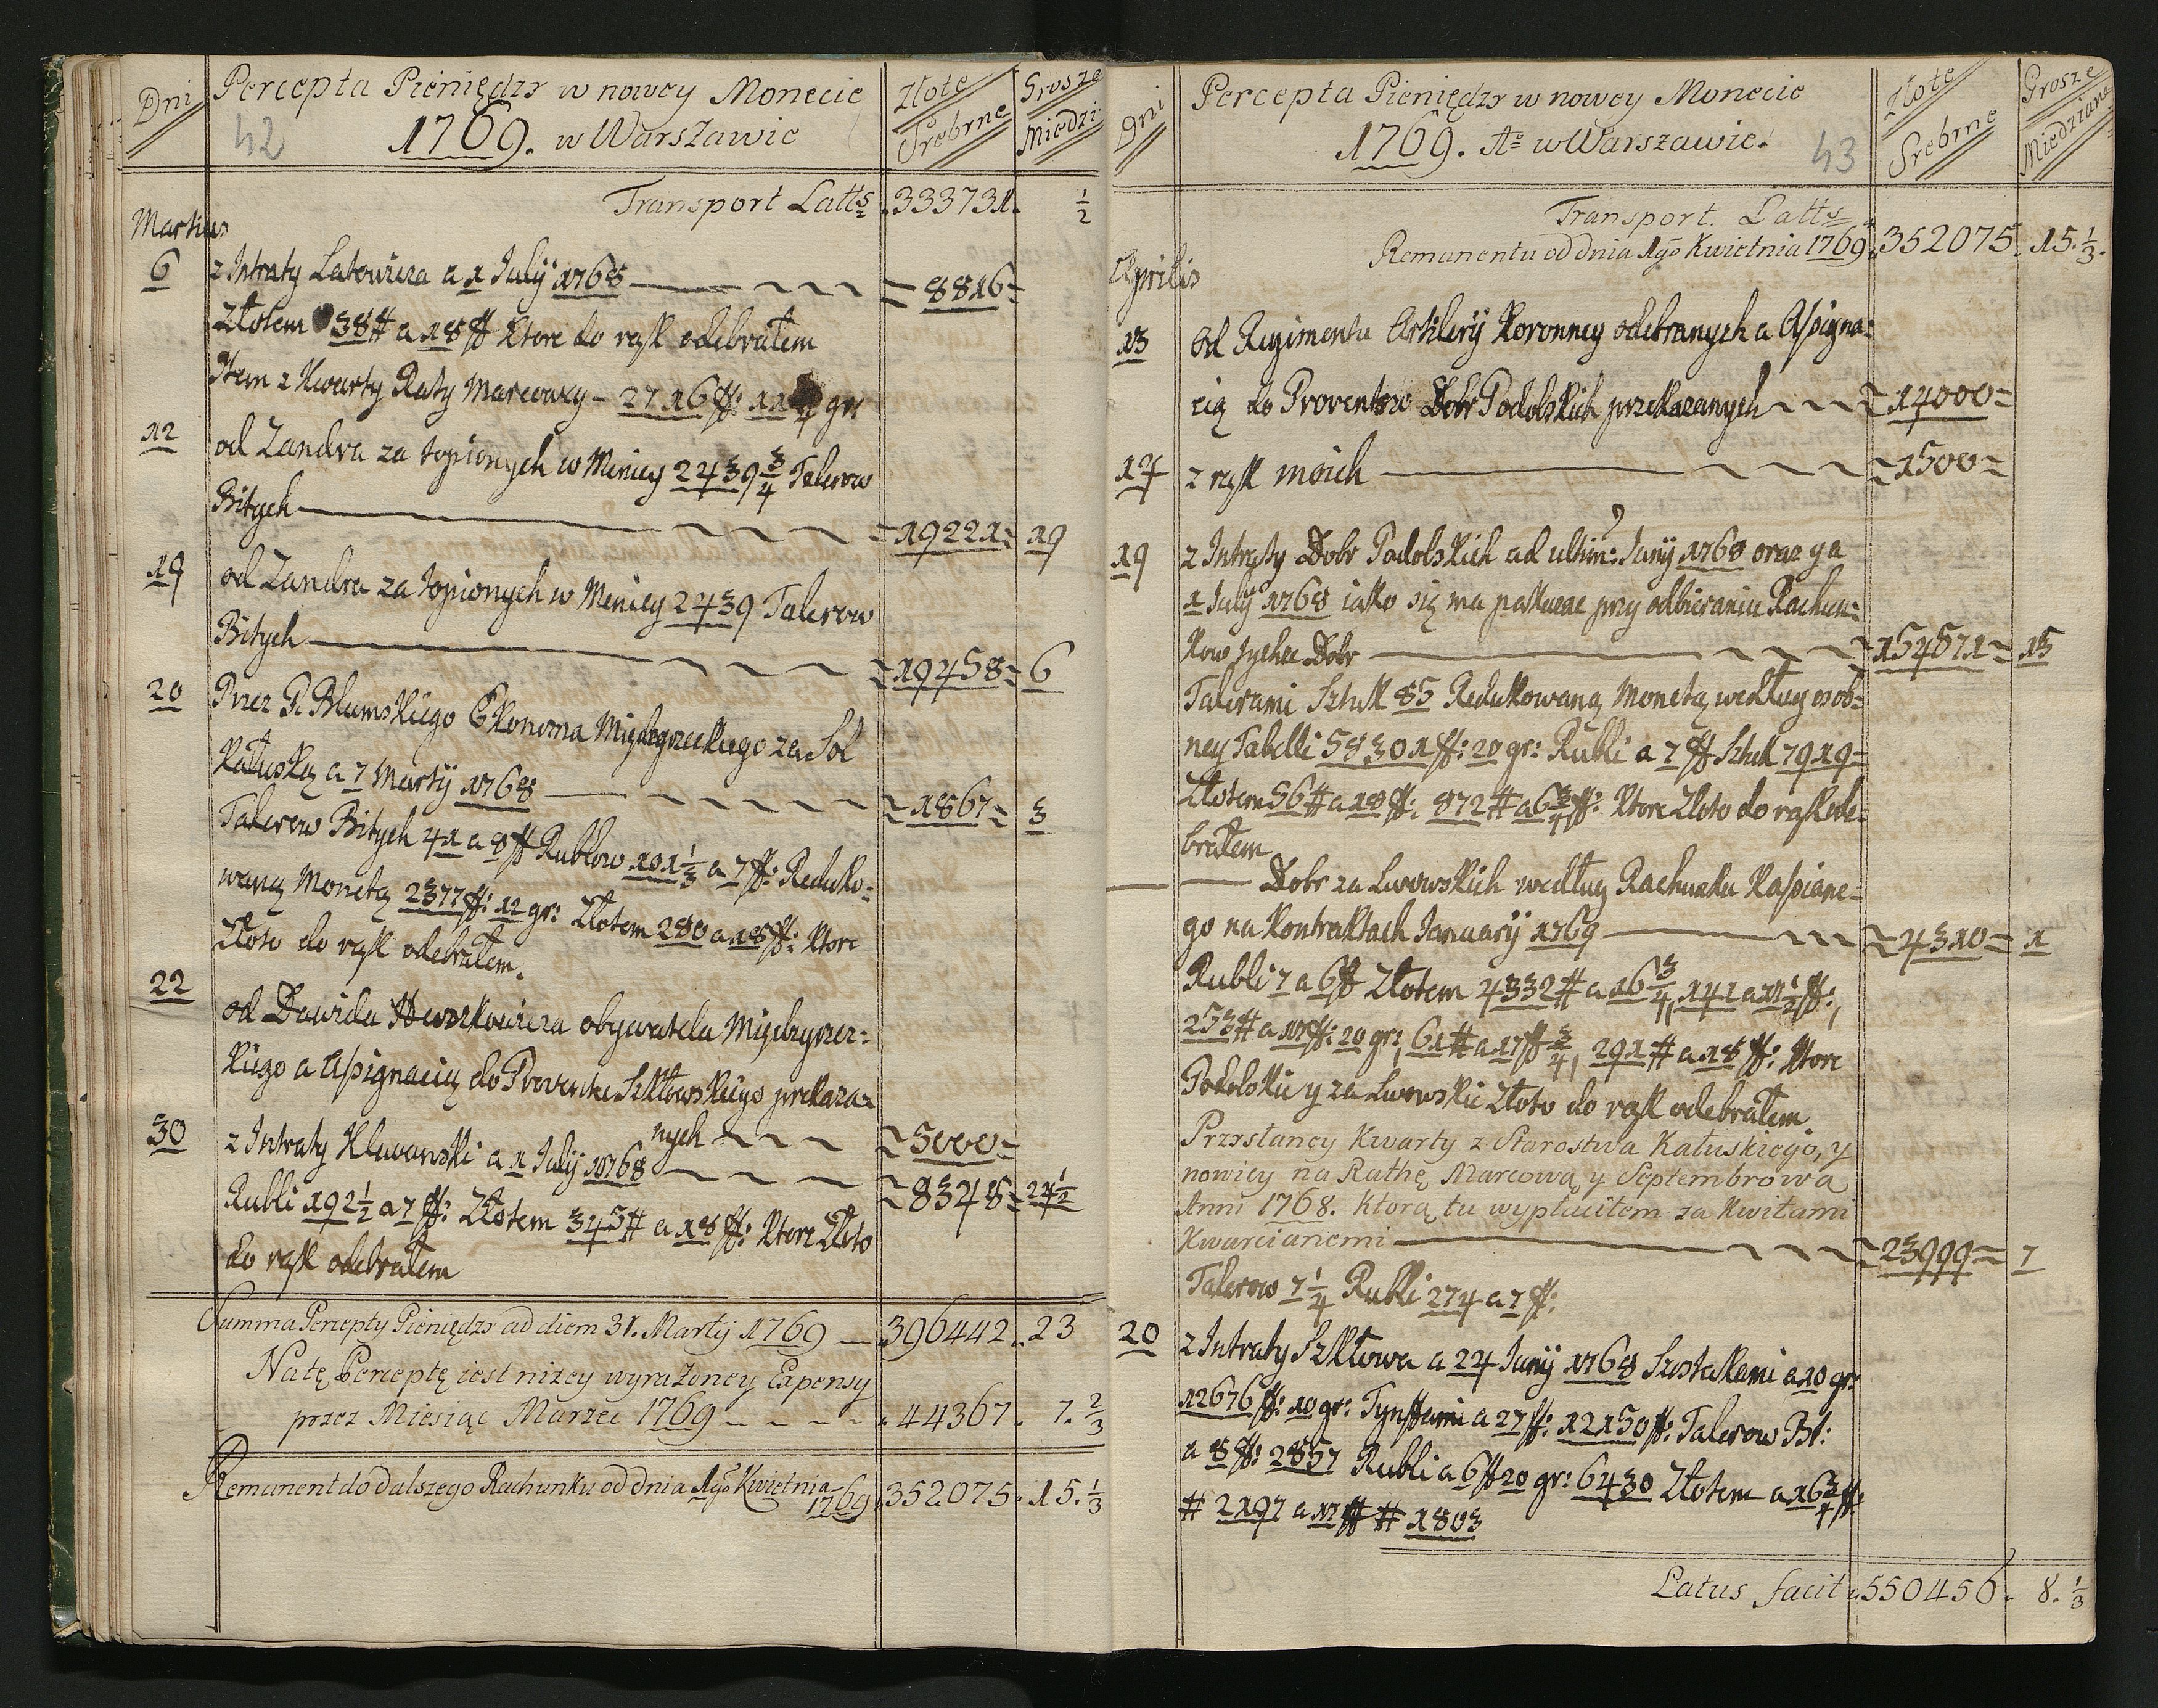 Dni
Percepta Pieniędzy w nowey Monecie
42 1769. w Warszawie
Złote Srebrne
Grosze Miedzi:
Transport Latts .333731. ½
Martius
6 z Intraty Latowicza a 1 Julÿ 1768 = 8816 =
Złotem 38# a 18 ff Ktore do rąk odebrałem
Item z Kwarty Raty Marcowey - 2716 ff: 11 gr:
12 od Zandra za topionych w Minicy 2439 3/4 Talerow
Bitych = 19221 = 19
19 od Zandra za topionych w Minicy 2439 Talerow
Bitych = 19458 = 6
20 Przez P. Blumskiego Ekonoma Międzyrzeckiego za Sol
Kałuską a 7 Martÿ 1768 = 1867 = 3
Talerow Bitych 41 a 8 ff Rublow 101 1/3 a 7 ff: Reduko-
waną Monetą 2377 ff: 12 gr: Złotem 280 a 18 ff: Ktore
Złoto do rąk odebrałem.
22 od Dawida obywatela Międzyrzec:
kiego a Assignacią do Proventu Szkłowskiego przekaza=
nych = 5000 =
30 z Intraty Klewanski a 1 Julÿ 1768 = 8348 = 24 ½
Rubli 192 ½ a 7 ff: Złotem 345 # a 18 ff: Ktore Złoto
do rąk odebrałem
Summa Percepty Pieniędzy ad diem 31. Martÿ 1769 — .396442. 23
Na tę Perceptę iest niżey wyrażoney Expensy
przez Miesiąc Marzec 1769 - - - - . 44367. 7. 2/3
Remanent do dalszego Rachunku od dnia 1go Kwietnia
1769 .352075. 15. 1/3
Dni
Percepta Pieniędzy w nowey Monecie
1769. Ao w Warszawie. 43
Złote Srebrne
Grosze Miedziane
Transport. Latts
Remanentu od dnia 1go Kwietnia 1769 .352075. 15. 1/3.
Aprilis
13 od Regimentu Artilerÿ Koronney odebranych a Assigna=
cią do Proventow Dobr Podolskich przekazanych = 14000 =
17 z rąk moich = 1500 =
19 z Intraty Dobr Podolskich ad ultim: Junÿ 1768 oraz
1 Julÿ 1768 iako się ma pokazac przy odbieraniu Rachun:
kow tychze Dobr = 154571 = 15
Talerami Sztuk 85 Redukowaną Monetą według osob=
ney Tabelli 58301 ff: 20 gr: Rubli a 7 ff Sztuk 7919 =
Złotem 56 # a 18 ff: 872 # a 6 3/4 ff: Ktore Złoto do rąk ode=
brałem
— — Dobr za Lwowskich według Rachunku Kassiane=
go na Kontraktach Januarÿ 1769 = 4310 = 1
Rubli 7 a 6 ff Złotem 4332 # a 16 3/4, 141 a 17 ½ ff:,
253 # a 17 ff: 20 gr:, 61 # a 17 ff 3/4, 291 # a 18 ff: Ktore
Podolskie y za Lwowskie Złoto do rąk odebrałem.
Przysłaney Kwarty z Starostwa Kałuskiego, y
nowicy na Rathę Marcową y Septembrową
Anni 1768. Ktorą tu wypłaciłem za Kwitami
Kwarcianemi = 23999 = 7
Talerow 7 1/4 Rubli 274 a 7 ff:
20 z Intraty Szkłowa a 24 Junÿ 1768 Szostakami a 10 gr:
12676 ff: 10 gr: Tynffami a 27 ff: 12150 ff: Talerow Bt:
a 8 ff: 2857 Rubli a 6 ff 20 gr: 6430 Złotem a 16 3/4 ff:
# 2197 a 17 ff # 1803
Latus facit .550456. 8. 1/3